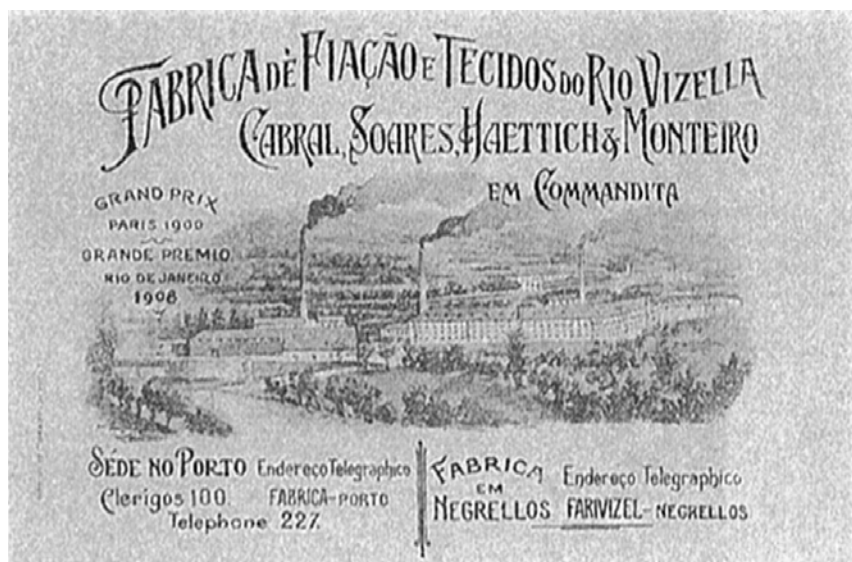 FABRICA DE FIAÇÃO E TECIDOS DO RIO VIZELLA
CABRAL, SOARES, HAETTICH & MONTEIRO
EM COMMANDITA
GRAND PRIX
PARIS 1900
GRANDE PREMIO
RIO DE JANEIRO
1908
SÉDE NO PORTO Endereço Telegraphico
Clerigos 100. FABRICA-PORTO
Telephone 227
FABRICA
EM
NEGRELLOS
Endereço Telegraphico
FARIVIZEL-NEGRELLOS